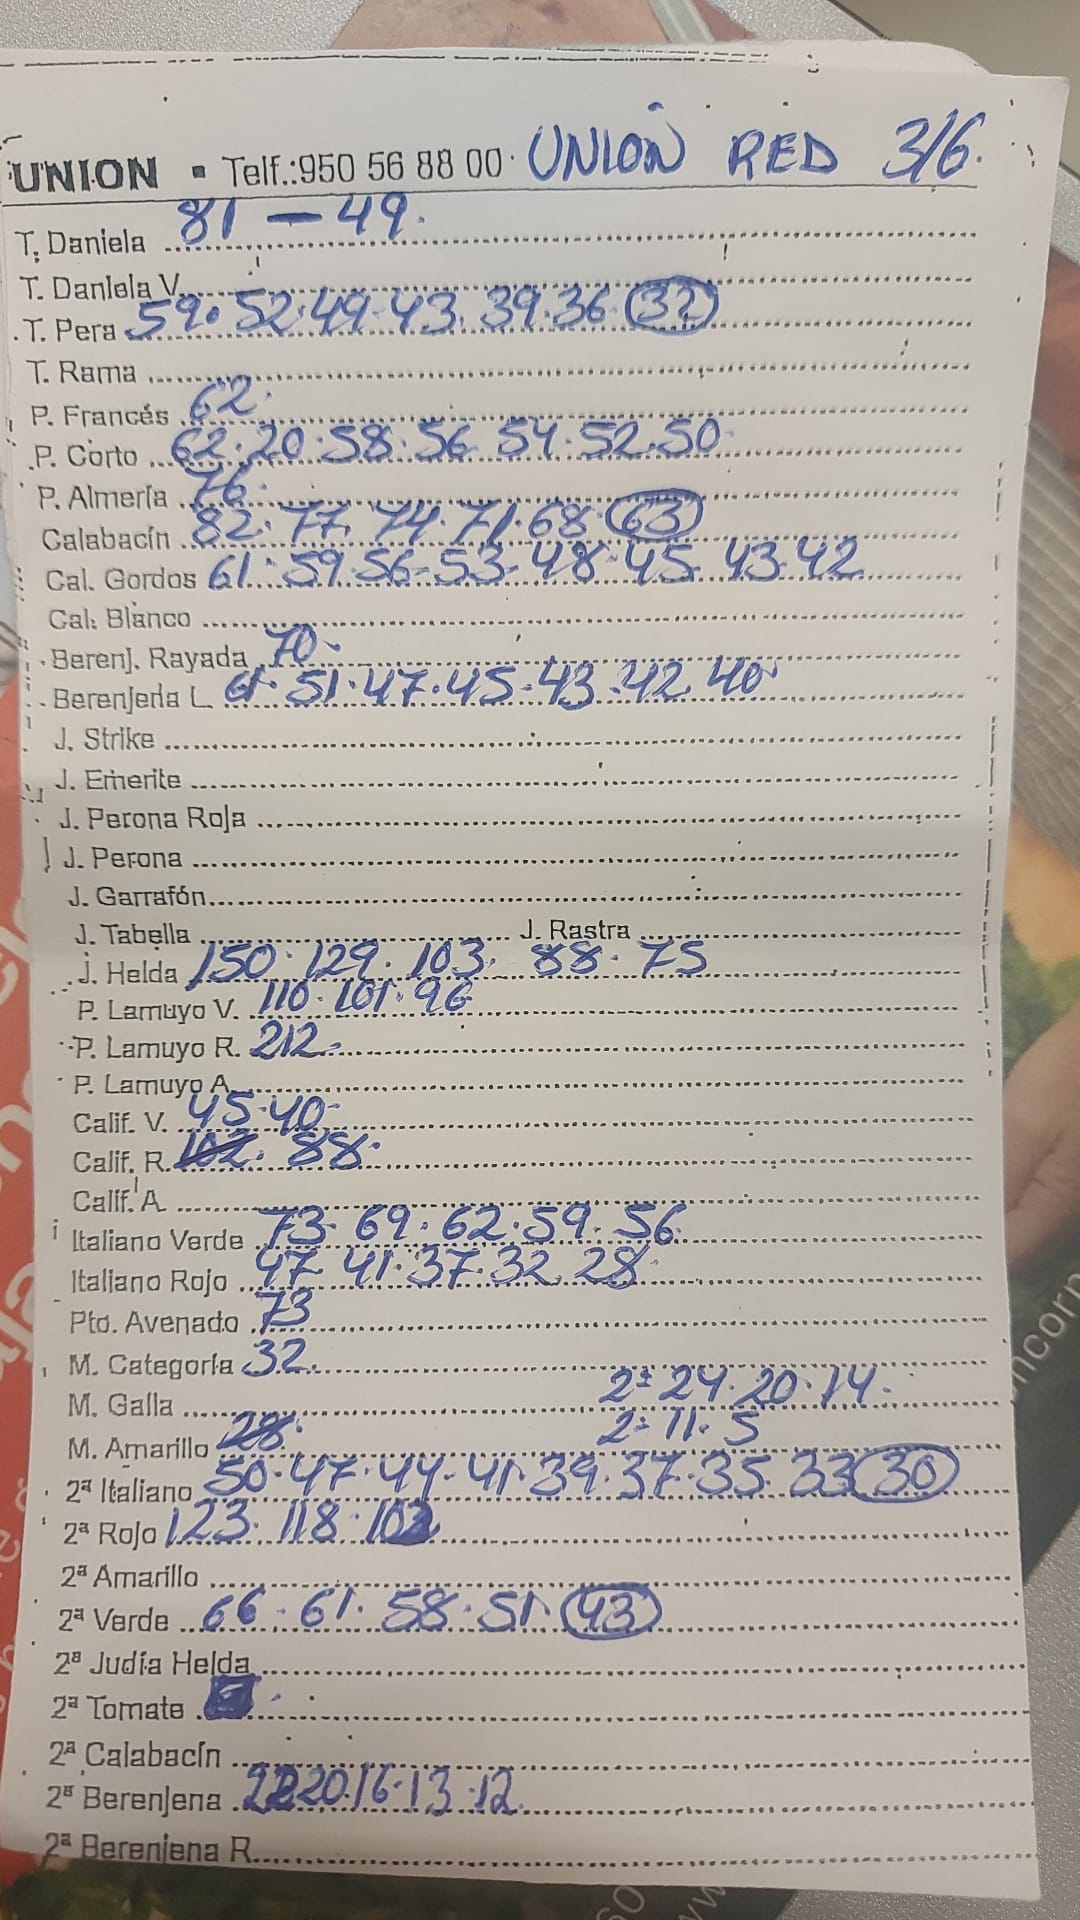 UNION ▪ Telf.:950 56 88 00 UNION RED 3/6.
T. Daniela 81 — 49.
T. Daniela V.
T. Pera 59. 52. 49. 43. 39. 36 (32)
T. Rama
P. Francés 62.
P. Corto 62. 20. 58. 56 54. 52. 50
P. Almería 76.
Calabacín 82. 77. 74. 71. 68 (63)
Cal. Gordos 61. 59. 56. 53. 48. 45. 43. 42
Cal. Blanco
Berenj. Rayada 70.
Berenjena L 61. 51. 47. 45. 43. 42. 40
J. Strike
J. Emerite
J. Perona Roja
J. Perona
J. Garrafón
J. Tabella J. Rastra
J. Helda 150. 129. 103. 88. 75
P. Lamuyo V. 110. 101. 96
P. Lamuyo R. 212.
P. Lamuyo A.
Calif. V. 45. 40
Calif. R. 102. 88.
Calif. A
Italiano Verde 73. 69. 62. 59. 56
Italiano Rojo 47 41. 37. 32. 28.
Pto. Avenado 73
M. Categoría 32.
M. Galla 2ª 24. 20. 14.
M. Amarillo 28. 2ª 11. 5
2ª Italiano 50. 47. 44. 41. 39. 37. 35. 33 (30)
2ª Rojo 123. 118.
2ª Amarillo
2ª Verde 66. 61. 58. 51. (43)
2ª Judía Helda
2ª Tomate
2ª Calabacín
2ª Berenjena 20. 16. 13. 12.
2ª Berenjena R.